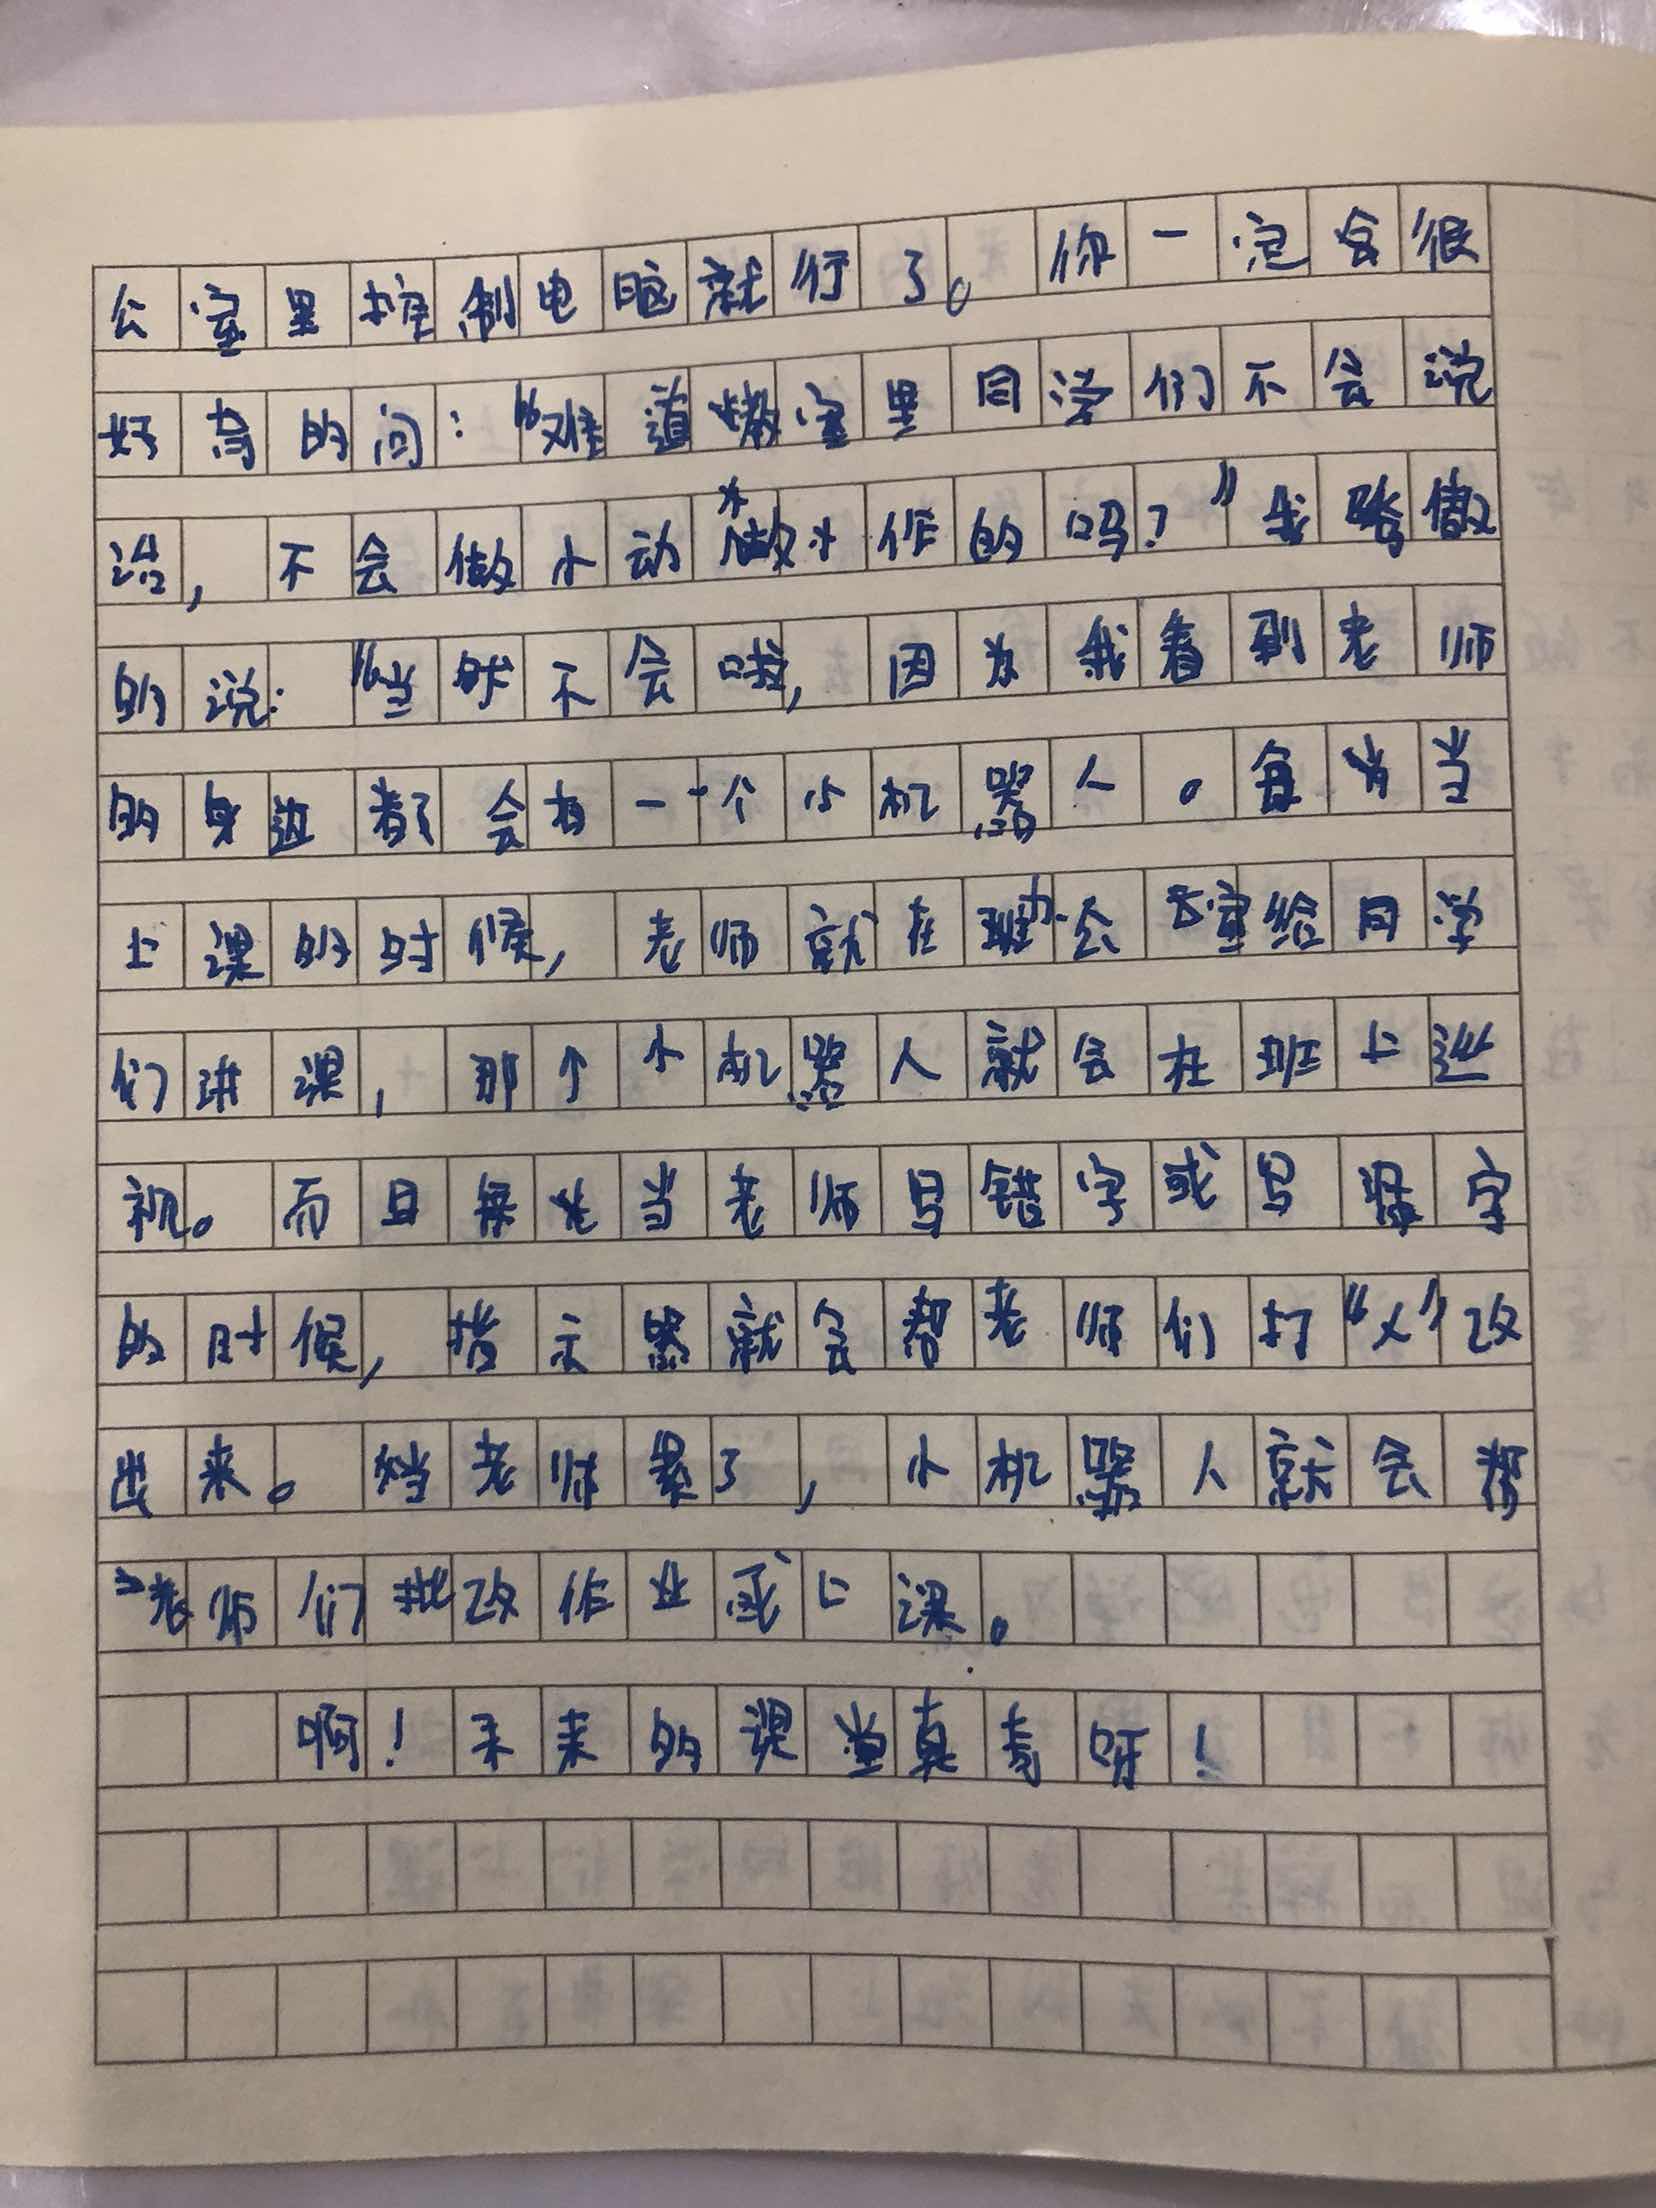 公室里控制电脑就行了。你一定会很
好奇的问：“难道教室里同学们不会说
话，不会做小动作的吗？”我骄傲
的说：“当然不会啦，因为我看到老师
的身边都会有一个小机器人。每当当
上课的时候，老师就在办公室给同学
们讲课，那个小机器人就会在班上巡
视。而且每当老师写错字或写漏字
的时候，指示器就会帮老师们打“×”改
出来。当老师累了，小机器人就会帮
老师们批改作业或上课。
啊！未来的课堂真奇呀！